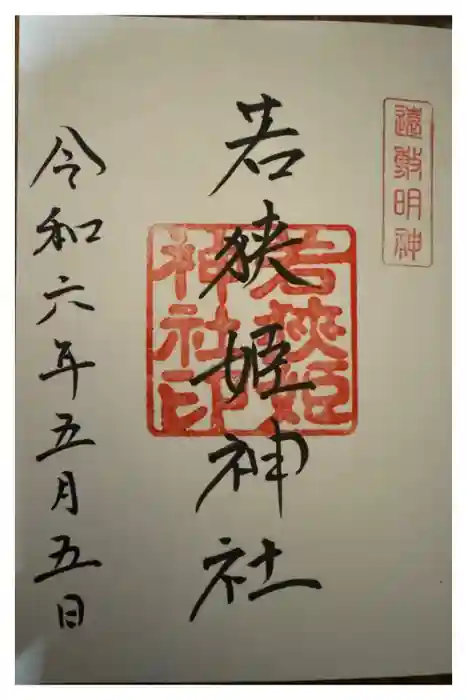 遠敷明神
若狭姫神社
若狭姫
神社印
令和六年五月五日